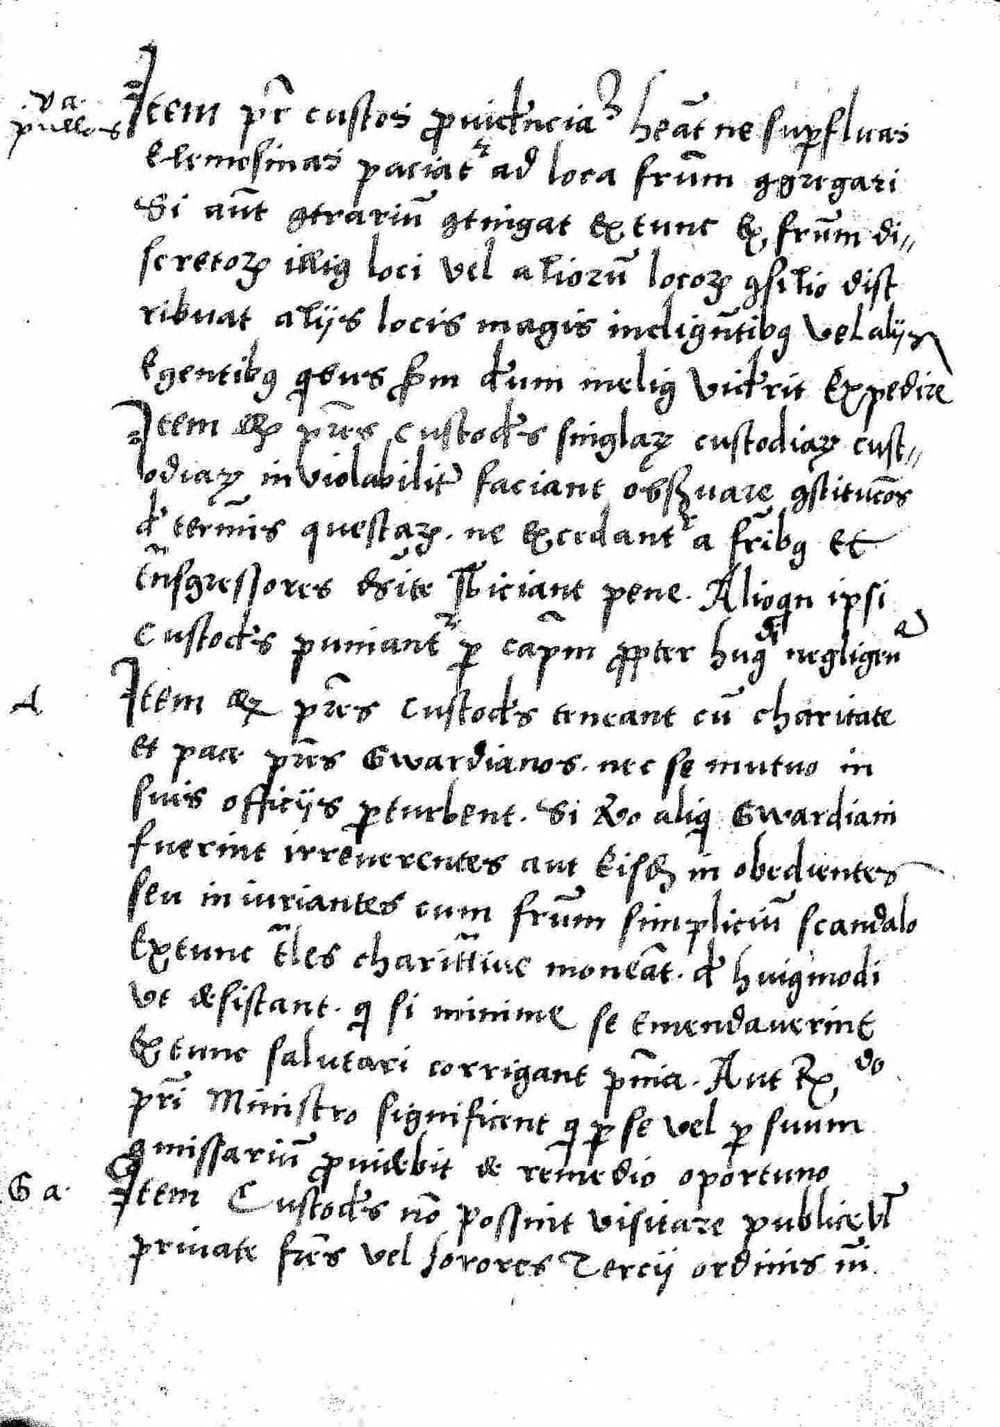 .va.
pullos
Item pr̄ custos ꝓuidencia3 heāt ne supfluas
Elemosinas paciatr ad loca frūm ꝯgregari
Si aūt ꝯtrariū ꝯtingat Extunc Ex frūm di„
scretoꝝ illiꝰ loci vel aliorū locoꝝ ꝯsilio dist
ribuat alijs locis magis indigētibꝰ vel alijs
Egentibꝰ sm̄ deum meliꝰ viderit Expedire
Item pr̄es custodes singlaꝝ custodiaꝝ cust„
odiaꝝ inviolabilit̄ faciant obsꝫuare ꝯstitucōs
de term̄is questaꝝ. ne Excedantr a fr̄ibꝰ Et
t̄nsgressores debite subiciant pene. Alioqn ipsi
Custodes puniantr ꝑ capm̄ ꝓpter huꝰ negligena
A Item pr̄es Custodes teneant cū charitate
et pace pr̄es Gwardianos. nec se mutuo in
suis officijs ꝑturbent. Si ṽo aliqi Gwardiani
fuerint irreuerentes aut Eisdꝫ in obedientes
seu in iuriantes cum frūm simpliciū scandalo
Extunc t̄les charit̄tiue moneāt. de huiꝰmodi
vt desistant. qi si minime se Emendauerint
Extunc salutari corrigant pn̄ia. Aut Rdo
pr̄i Ministro significent qi ꝑ se vel ꝑ suum
ꝯmissariū ꝓuidebit de remedio oportuno
Ga. Item Custodes nō possint visitare publice vl̄
priuate fr̄es vel sorores Tercij ordinis n̄i